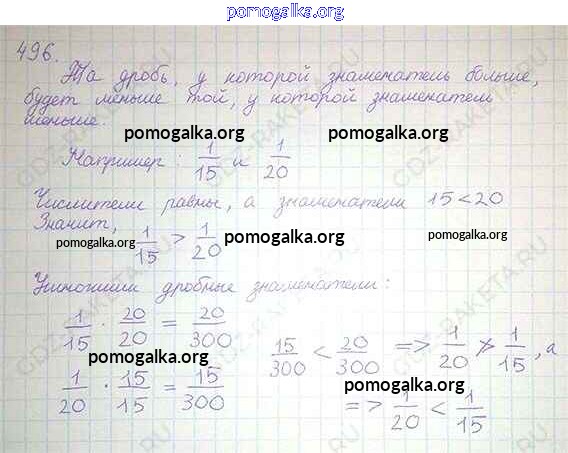 pomogalka.org
496.
Та дробь, у которой знаменатель больше,
будет меньше той, у которой знаменатель
меньше.
pomogalka.org pomogalka.org
Например: 1/15 и 1/20
Числители равны, а знаменатели 15 < 20
Значит, 1/15 > 1/20
pomogalka.org pomogalka.org pomogalka.org
дробные знаменатели:
1/15 · 20/20 = 20/300
pomogalka.org
15/300 < 20/300 => 1/20 > 1/15, а
1/20 · 15/15 = 15/300
pomogalka.org
=> 1/20 < 1/15
pomogalka.org
GDZ-RAKETA.RU